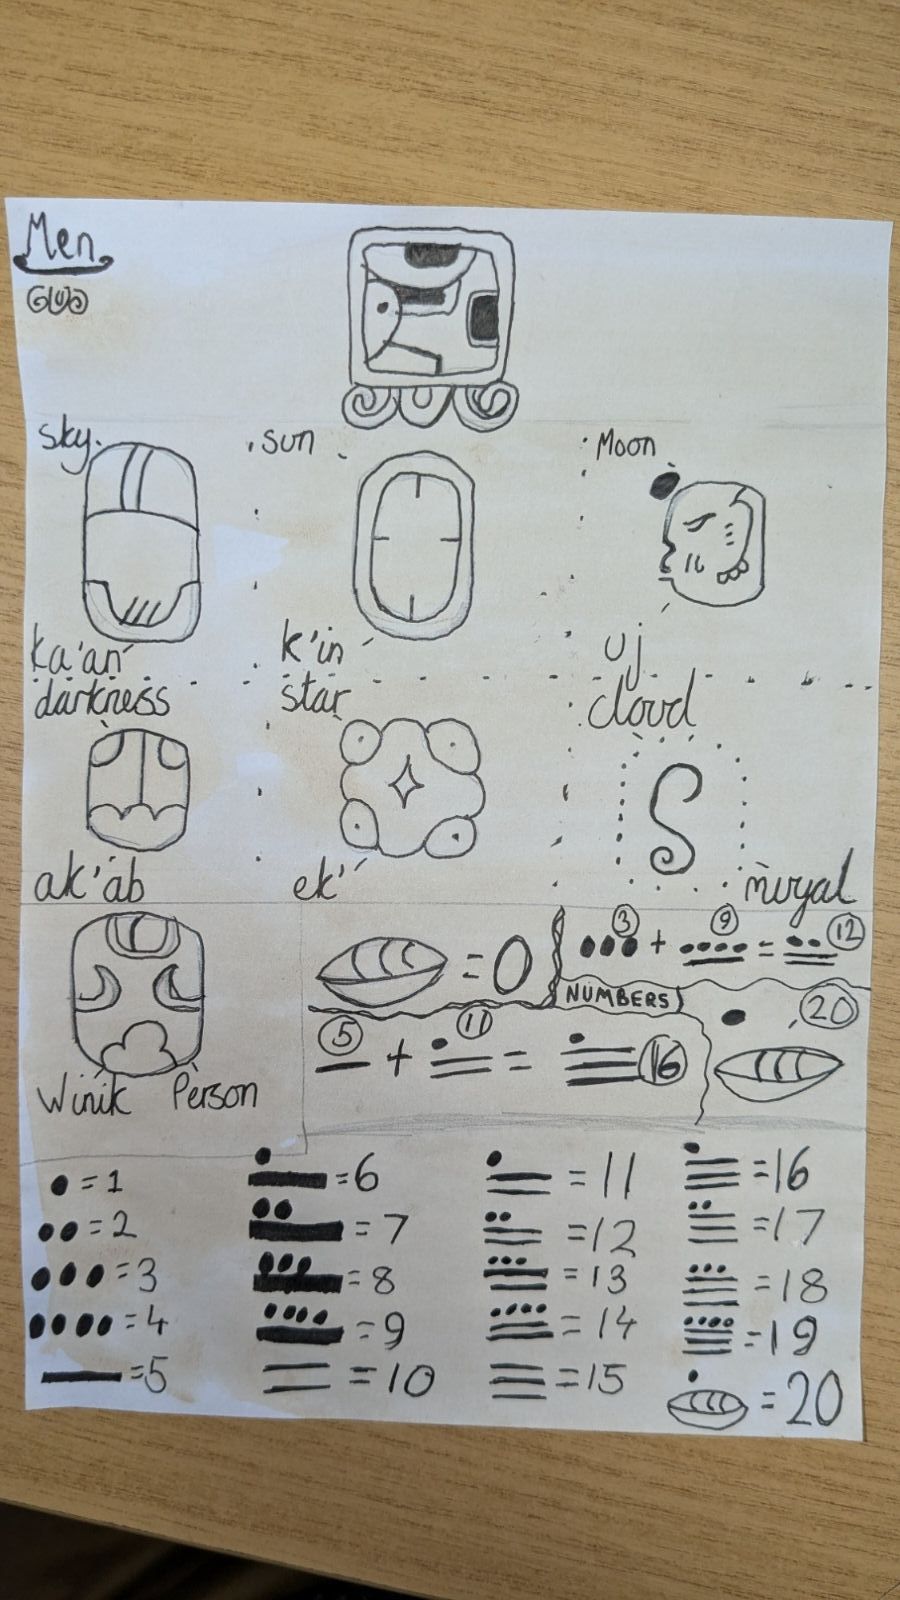 Men
sky
sun
Moon
ka'an
k'in
uj
darkness
star
cloud
ak'ab
ek'
muyal
= 0
3 + 9 = 12
NUMBERS
20
5 + 11 = 16
Winik Person
= 1
= 2
= 3
= 4
= 5
= 6
= 7
= 8
= 9
= 10
= 11
= 12
= 13
= 14
= 15
= 16
= 17
= 18
= 19
= 20